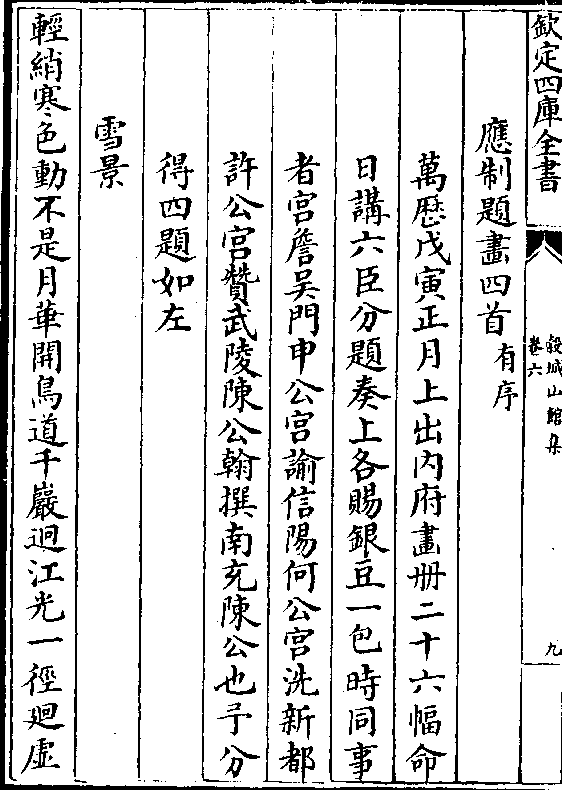 欽定四庫全書
穀城山館集
卷六
九
應制題畫四首有序
萬歷戊寅正月上出內府畫册二十六幅命
日講六臣分題奏上各賜銀豆一包時同事
者宮詹吳門申公宮諭信陽何公宮洗新都
許公宮贊武陵陳公翰撰南充陳公也予分
得四題如左
雪景
輕綃寒色動不是月華開鳥道千巖迥江光一徑廻虛